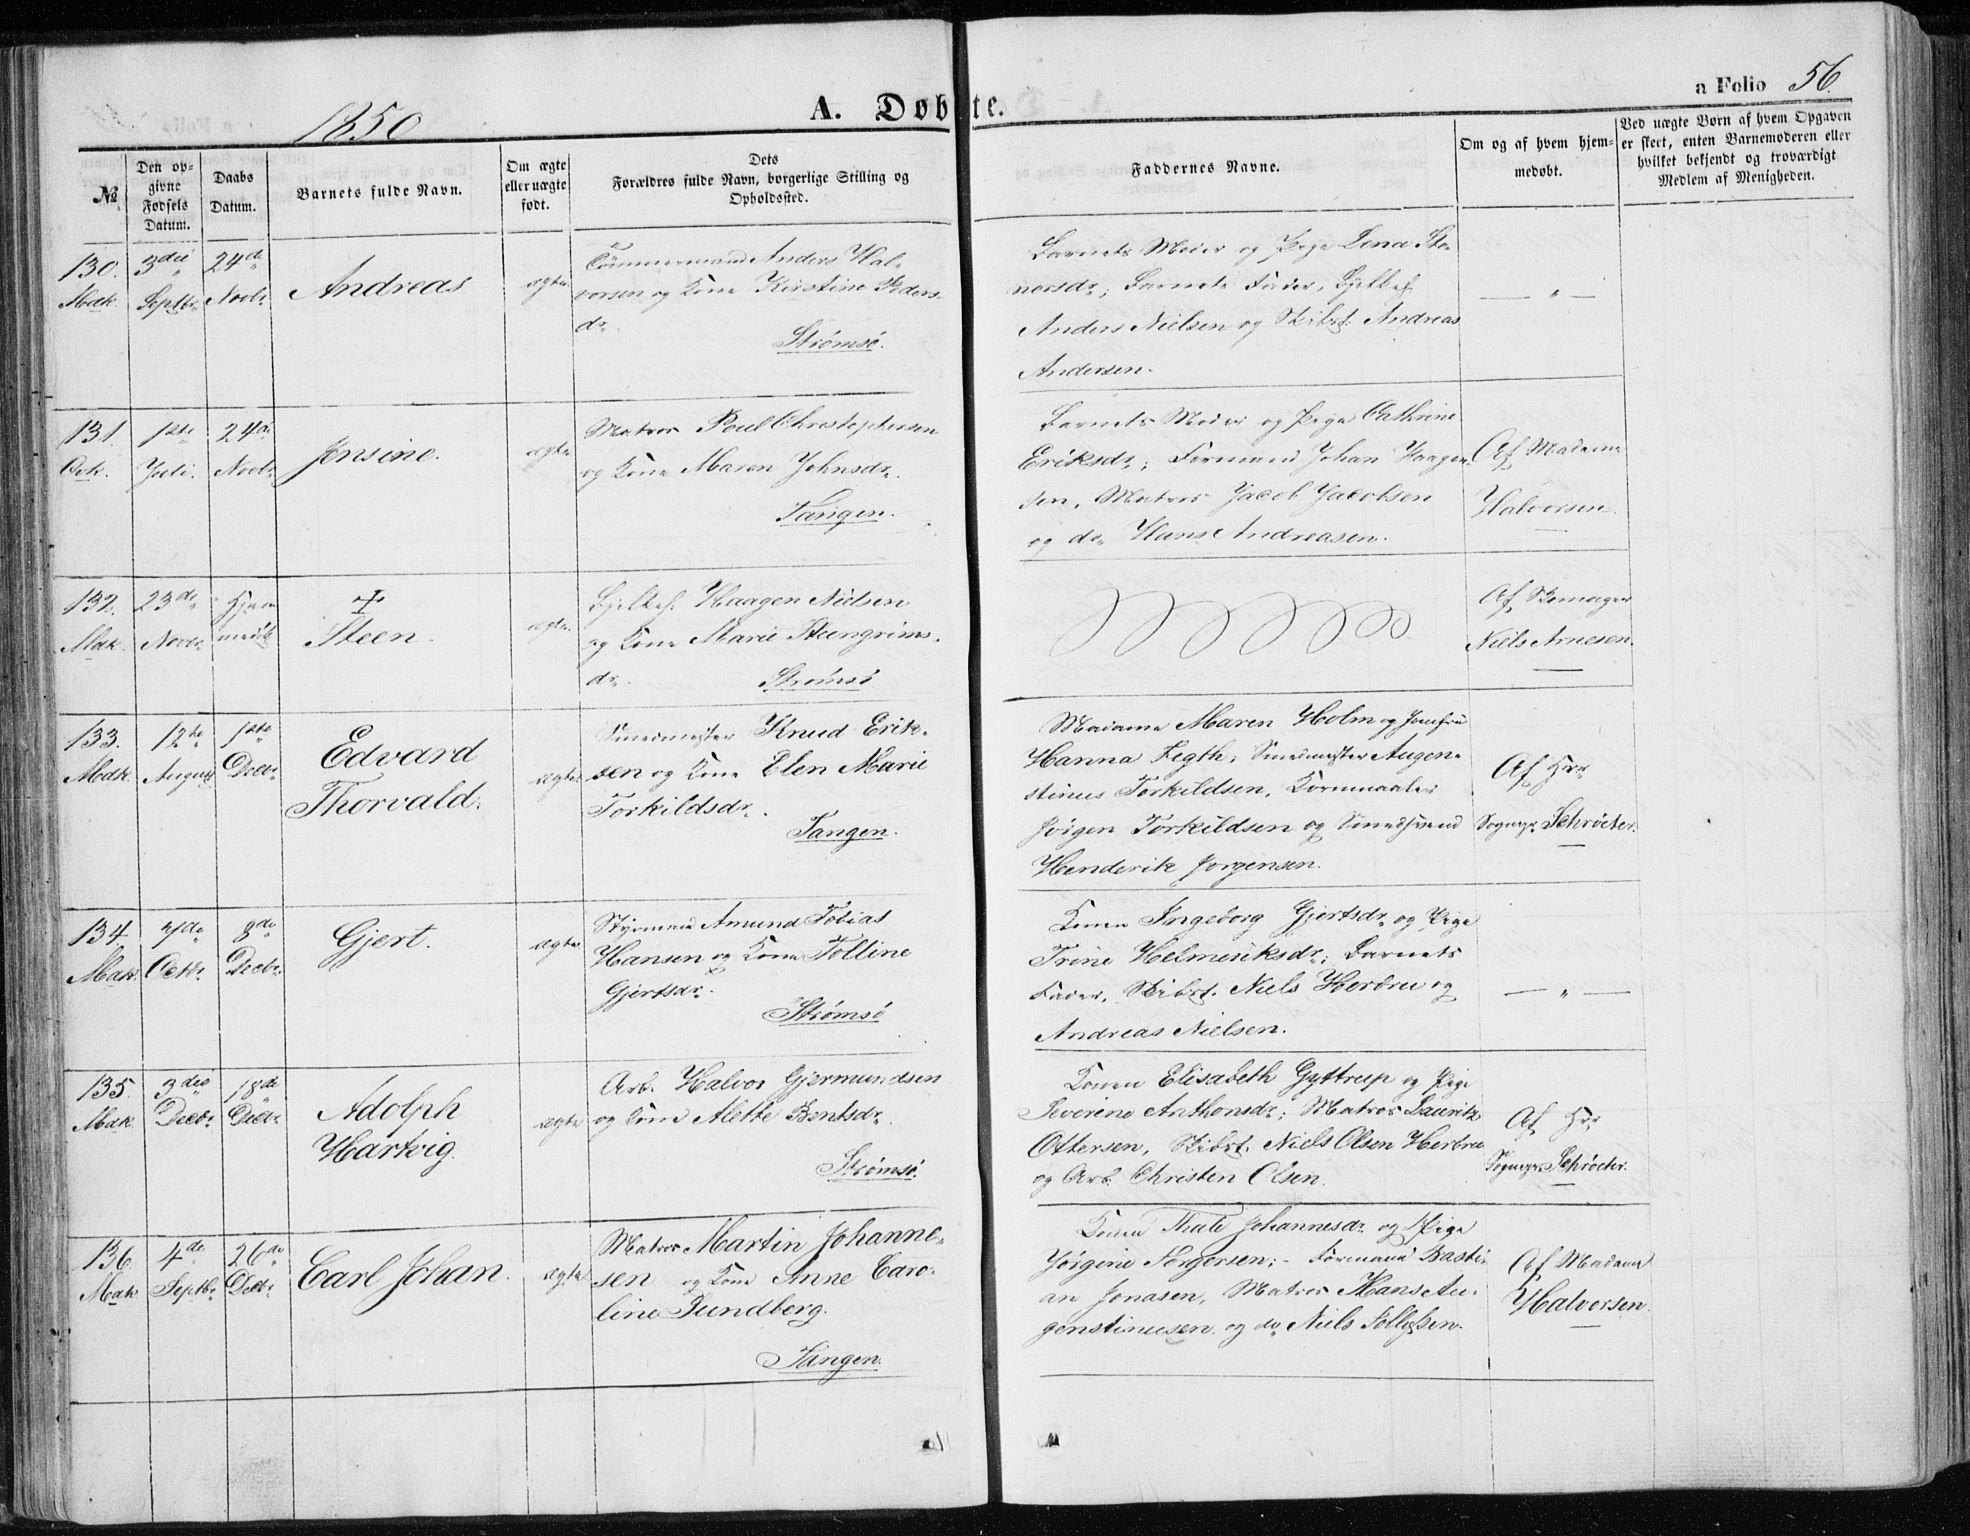 a Folio 56.
1850
A. Døbte.
№
Den opgivne Fødsels Datum.
Daabs Datum.
Barnets fulde Navn.
Om ægte eller uægte født.
Dets Forældres fulde Navn, borgerlige Stilling og Opholdssted.
Faddernes Navne.
Om og af hvem hjemmedøbt.
Ved uægte Børn af hvem Opgaven er skeet, enten Barnemoderen eller hvilket bekjendt og troværdigt Medlem af Menigheden.
130. 3die 24de
Septbr. Novbr.
Andreas
ægte
Tømmermand Anders Hal-
vorsen og Kone Kirstine Peders-
dr.
Strømsø.
Barnets Moder og Pige Lena
Barnets Fader,
Anders Nielsen og Skibst. Andreas
Andersen.
— „ —
131. 1ste 24de
Juli. Novbr.
Jensine.
ægte
Matros Poul Christophersen
og Kone Maren Johnsdr.
Tangen.
Barnets Moder og Pige Cathrine
Eriksdr.; Formand Johan Haagen-
sen, Matros Jacob Jacobsen
og do. Hans Andreasen.
Af Madame
Halvorsen.
132. 23de Hjem-
Novbr.
+
Steen.
ægte.
Haagen Nielsen
og Kone Marie Steengrims-
dr.
Strømsø
Af Skomager
Niels Arnesen.
133. 12te 1ste
August Decbr.
Edvard
Thorvald.
ægte
Smedmester Knud Erik-
sen og Kone Elen Marie
Torkildsdr.
Tangen.
Madame Maren Holm og Jomfru
Hanna Fegth, Smedmester Augen-
stinus Torkildsen, Kornmaaler
Jørgen Torkildsen og Smedsvend
Henderik Jørgensen.
Af Hrr
Sognepr. Schrøeter.
134. 7de 8de
Octbr. Decbr.
Gjert.
ægte
Styrmand Amund Tobias
Hansen og Kone Tolline
Gjertsdr.
Strømsø
Konen Ingeborg Gjertsdr. og Pige
Trine Helmeriksdr.; Barnets
Fader, Skibst. Niels Herbru og
Andreas Nielsen.
— „ —
135. 3die 18de
Decbr. Decbr.
Adolph
Hartvig.
ægte
Arb. Halvor Gjermundsen
og Kone Alette Bentsdr.
Strømsø.
Konen Elisabeth Gyttrup og Pige
Severine Anthonsdr.; Matros Lauritz
Ottersen, Skibst. Niels Olsen Herbru
og Arb. Christen Olsen.
Af Hrr
Sognepr. Schrøeter.
136. 4de 26de
Septbr. Decbr.
Carl Johan.
ægte
Matros Martin Johanne-
sen og Kone Anne Caro-
line Sundberg.
Tangen.
Konen Thale Johannesdr. og Pige
Jørgine Torgersen; - Formand Basti-
an Jonasen, Matros Hans Au-
genstinusen og do. Niels
Af Madame
Halvorsen.